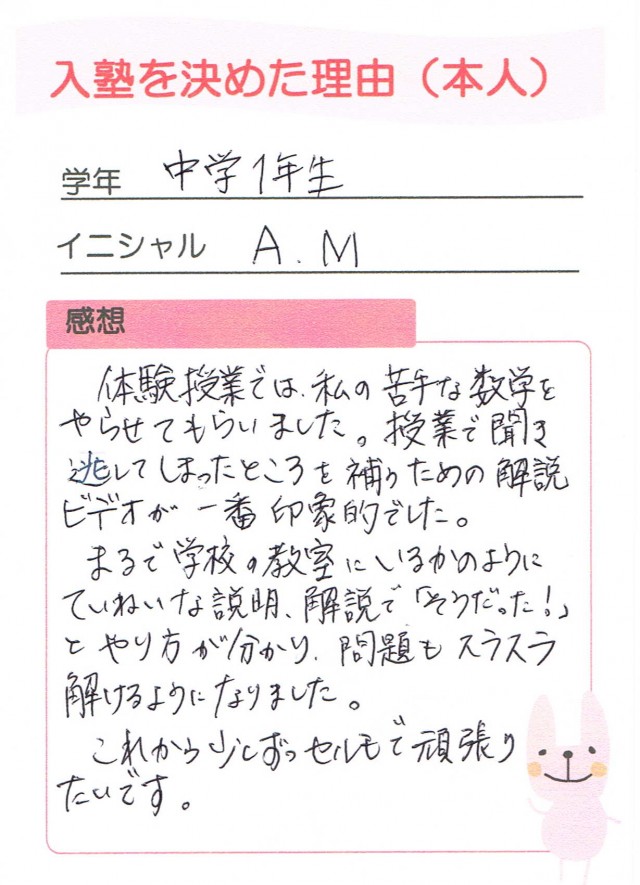 入塾を決めた理由（本人）
学年 中学1年生
イニシャル A.M
感想
体験授業では、私の苦手な数学を
やらせてもらいました。授業で聞き
逃してしまったところを補うための解説
ビデオが一番印象的でした。
まるで学校の教室にいるかのように
ていねいな説明、解説で「そうだった！」
とやり方が分かり、問題もスラスラ
解けるようになりました。
これから少しずつセルモで頑張り
たいです。